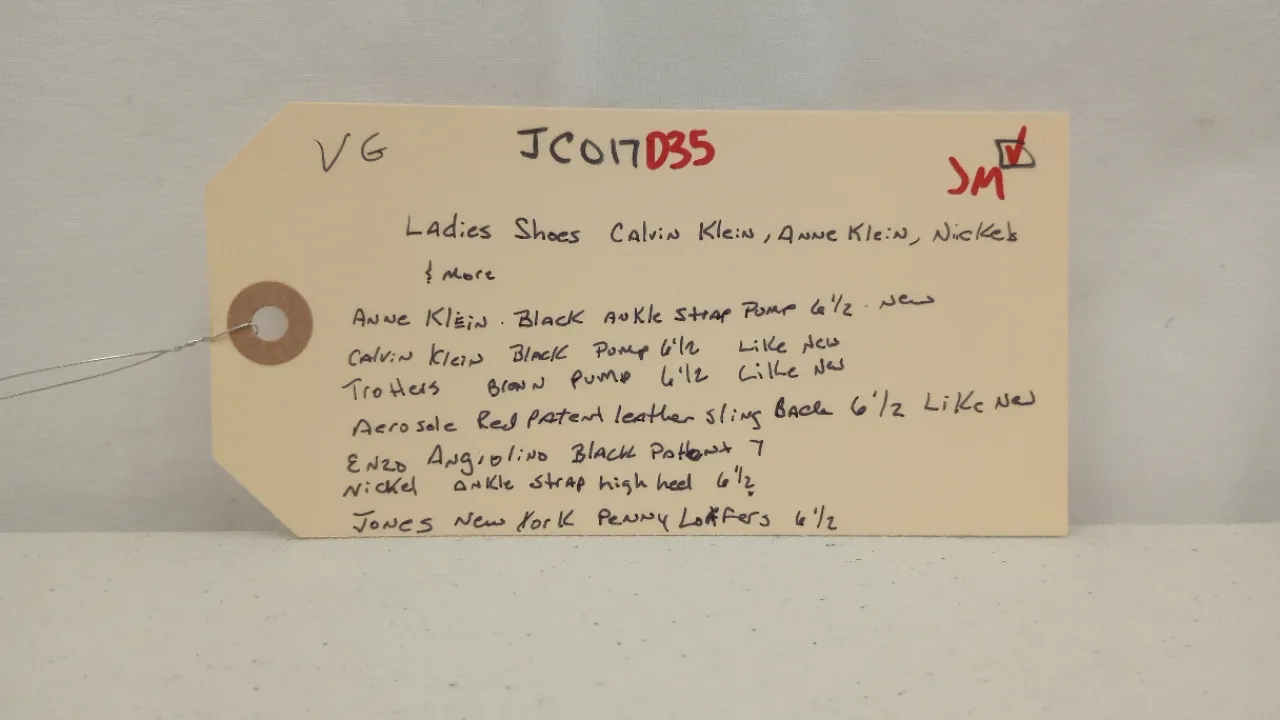 VG JC017D35 JM
Ladies Shoes Calvin Klein, Anne Klein, Nickels
& More
Anne Klein. Black Ankle Strap Pump 6 1/2 - New
Calvin Klein Black Pump 6 1/2 Like New
Trotters Brown Pump 6 1/2 Like New
Aerosole Red Patent leather Sling Back 6 1/2 Like New
Enzo Angiolino Black Patent 7
Nickel Ankle Strap high heel 6 1/2
Jones New York Penny Loffers 6 1/2